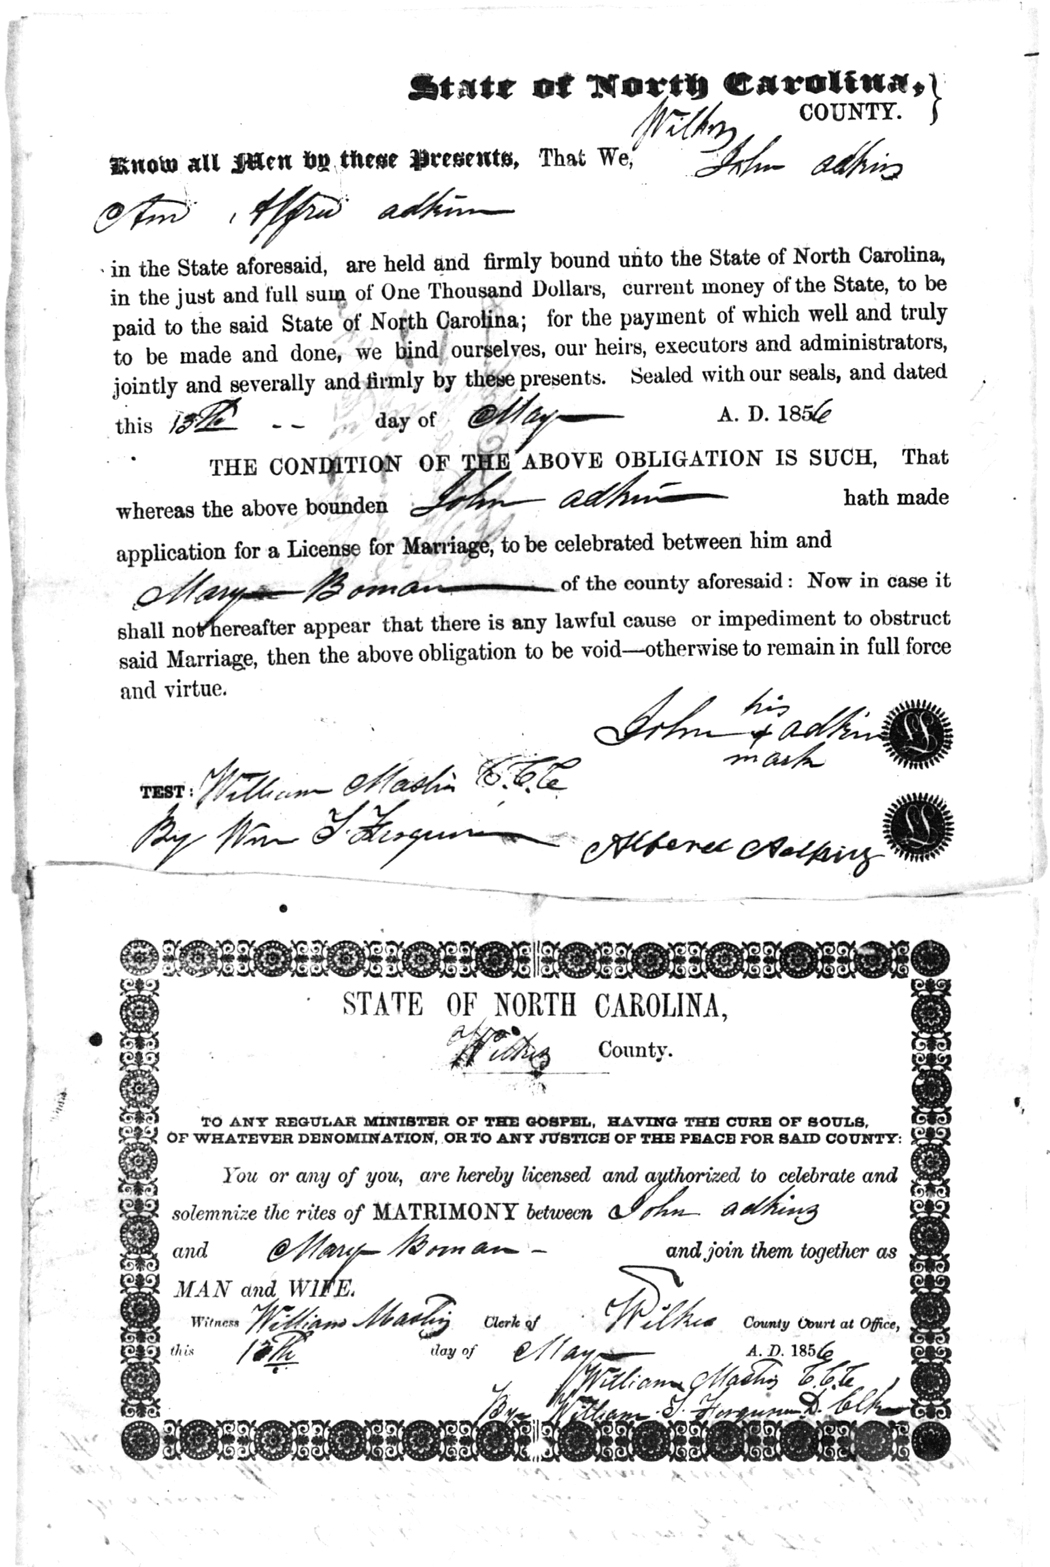 State of North Carolina,
Wilkes COUNTY.
Know all Men by these Presents, That We, John adkins
And Alfred adkins
in the State aforesaid, are held and firmly bound unto the State of North Carolina,
in the just and full sum of One Thousand Dollars, current money of the State, to be
paid to the said State of North Carolina; for the payment of which well and truly
to be made and done, we bind ourselves, our heirs, executors and administrators,
jointly and severally and firmly by these presents. Sealed with our seals, and dated
this 13th day of May A. D. 1856
THE CONDITION OF THE ABOVE OBLIGATION IS SUCH, That
whereas the above bounden John adkins hath made
application for a License for Marriage, to be celebrated between him and
Mary Boman of the county aforesaid: Now in case it
shall not hereafter appear that there is any lawful cause or impediment to obstruct
said Marriage, then the above obligation to be void—otherwise to remain in full force
and virtue.
his
John + adkins
mark
TEST: William Mastin C.C.C.
By Wm T. Ferguson
Adkins
STATE OF NORTH CAROLINA,
Wilkes County.
TO ANY REGULAR MINISTER OF THE GOSPEL, HAVING THE CURE OF SOULS,
OF WHATEVER DENOMINATION, OR TO ANY JUSTICE OF THE PEACE FOR SAID COUNTY:
You or any of you, are hereby licensed and authorized to celebrate and
solemnize the rites of MATRIMONY between John adkins
and Mary Boman - and join them together as
MAN and WIFE.
Witness William Mastin Clerk of Wilkes County Court at Office,
this 13th day of May A. D. 1856
William Mastin C.C.C.
By William T. Ferguson D. Clk